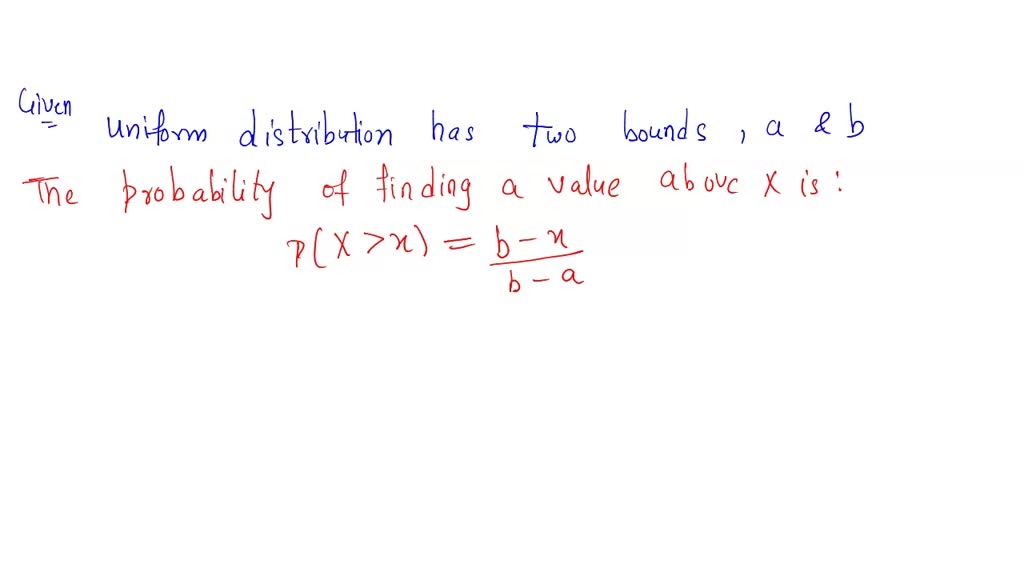 Given
uniform distribution has two bounds, a & b
The probability of finding a value above X is:
P(X > x) = b - x / b - a